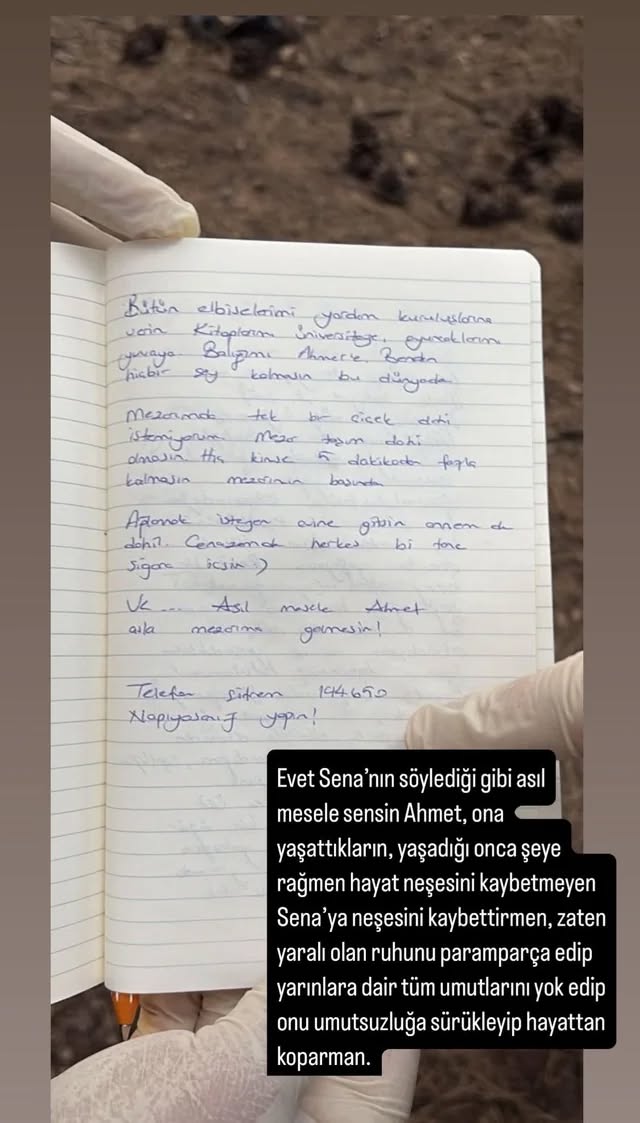 Bütün elbiselerimi yardım kuruluşlarına
verin Kitaplarımı üniversiteye, oyuncaklarımı
yuvaya Balığımı Ahmet'e. Benden
hiçbir şey kalmasın bu dünyada
Mezarımda tek bir çiçek dahi
istemiyorum. Mezar taşım dahi
olmasın. Hiç kimse 5 dakikadan fazla
kalmasın mezarımın başında
Ağlamak isteyen evine gitsin annem de
dahil. Cenazemde herkes bi tane
sigara içsin :)
Ve ... Asıl mesele Ahmet
asla mezarıma gelmesin!
Telefon şifrem 194650
Napıyosanız yapın!
Evet Sena’nın söylediği gibi asıl
mesele sensin Ahmet, ona
yaşattıkların, yaşadığı onca şeye
rağmen hayat neşesini kaybetmeyen
Sena’ya neşesini kaybettirmen, zaten
yaralı olan ruhunu paramparça edip
yarınlara dair tüm umutlarını yok edip
onu umutsuzluğa sürükleyip hayattan
koparman.